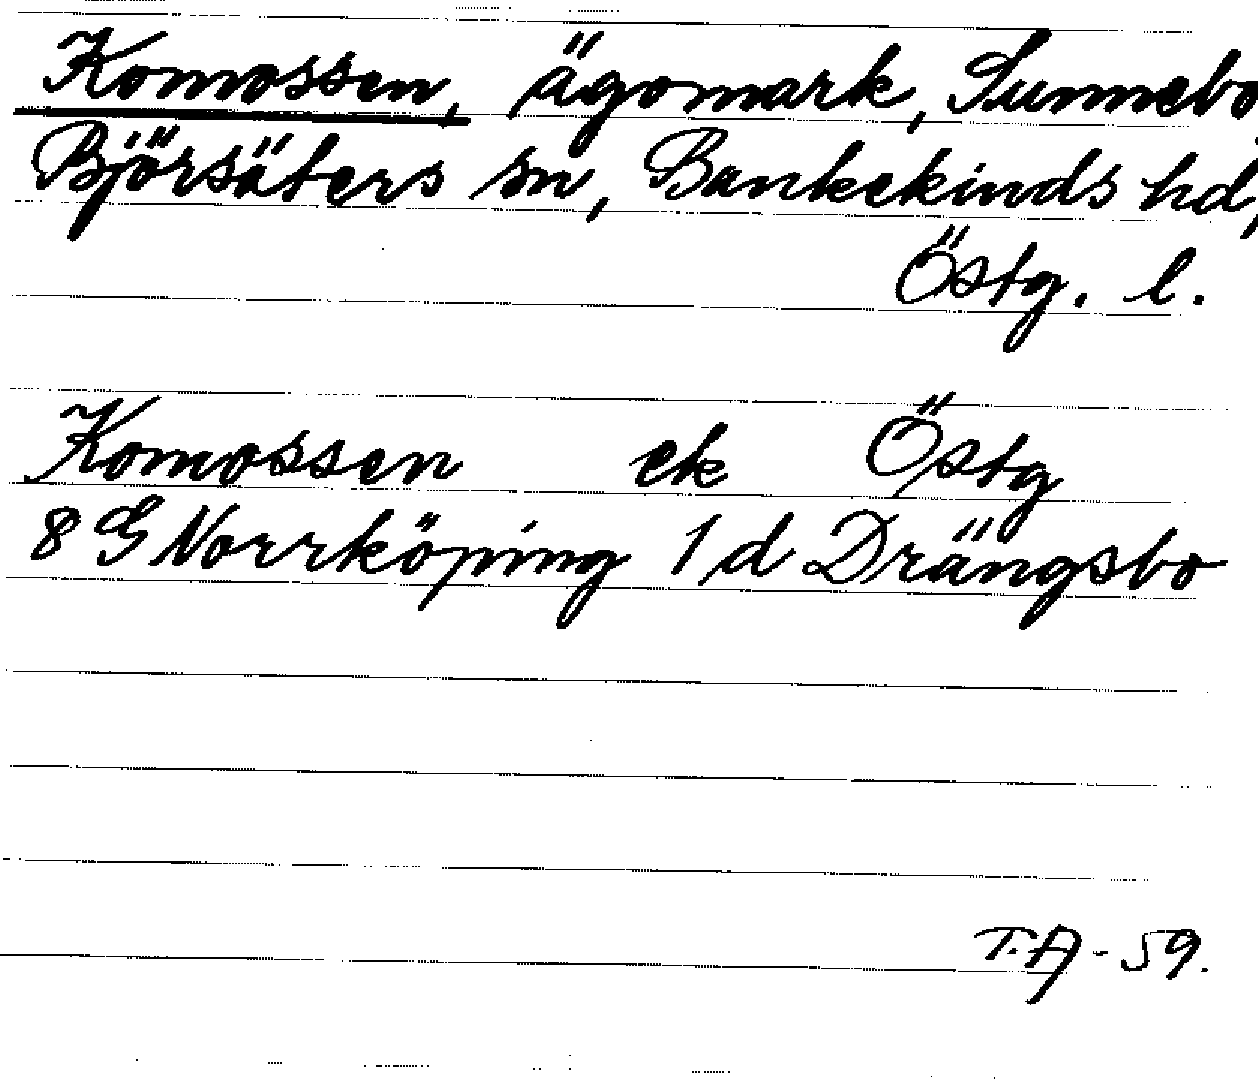 Komossen, ägomark, Sunnebo,
Björsäters sn, Bankekinds hd,
Östg. l.
Komossen ek Östg
8 G Norrköping 1 d Drängsbo
T.A-59.